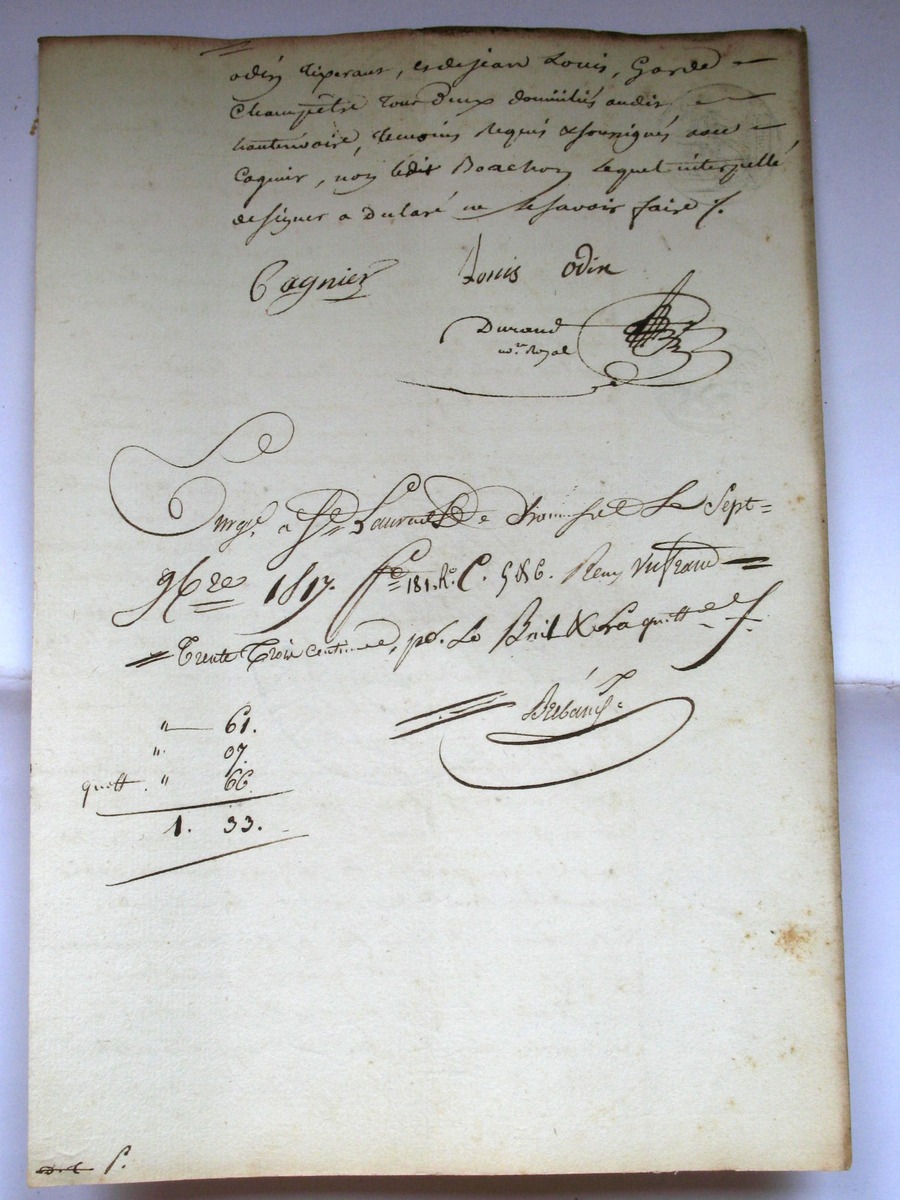 odin tisserant, et de jean Louis, Garde
Champêtre tous Deux domiciliés audit
hauterivoire, temoins requis & soussignés avec
Cognier, non ledit Boachon lequel interpellé
de signer a Declaré ne le savoir faire ./.
Cognier Louis odin
Durand
no.re Royal
Enregé. a St. Laurent De Chamousset Le Sept
9bre 1817. fo 181. Ro. C. 5 & 6. Reçu un franc
Trente Trois centimes, pr. Le Bail & La quittce ./.
" 61.
" 07.
quitt. " 66.
1. 33.